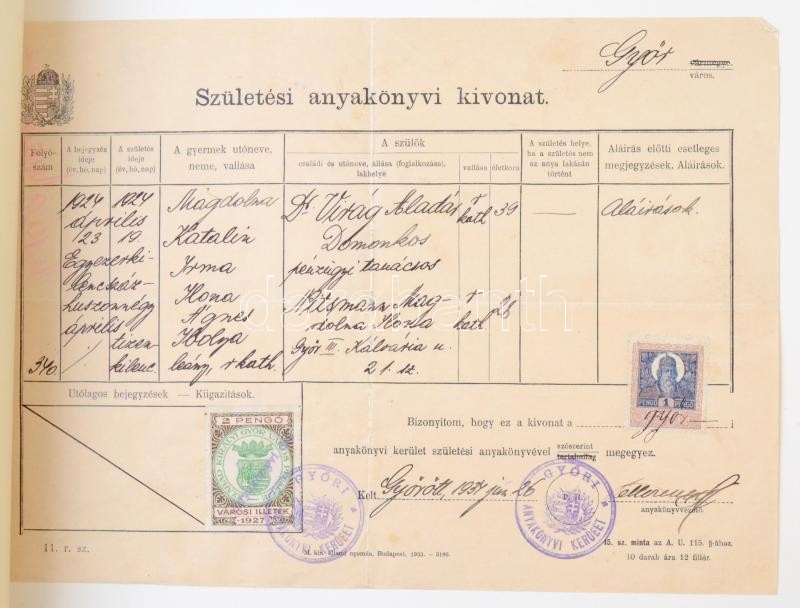 Győr vármegye
város.
Születési anyakönyvi kivonat.
Folyó-szám
A bejegyzés ideje (év, hó, nap)
A születés ideje (év, hó, nap)
A gyermek utóneve, neme, vallása
A szülők
családi és utóneve, állása (foglalkozása), lakhelye
vallása
életkora
A születés helye, ha a születés nem az anya lakásán történt
Aláírás előtti esetleges megjegyzések. Aláírások.
1924 1924 Magdolna Dr. Virág Aladár r. kath 39 — Aláírások.
április április
23 19. Katalin Domonkos
Egyezerki- Irma pénzügyi tanácsos
lencszáz- Ilona Nitsmann Mag- r. kath 26
huszonnégy Ágnes dolna Ilona
április tizen- Ibolya Győr III. Kálvária u.
340 kilenc. leány, r kath. 21. sz.
Utólagos bejegyzések — Kiigazítások.
2 PENGŐ
SZAB. KIRÁLYI GYŐR VÁROS
VÁROSI ILLETÉK
1927
PENGŐ 1 PENGŐ
Bizonyítom, hogy ez a kivonat a győri
anyakönyvi kerület születési anyakönyvével szószerint tartalmilag megegyez.
Kelt Győrött, 1937 jún 26
P. H.
anyakönyvvezető.
GYŐRI ANYAKÖNYVI KERÜLET
GYŐRI ANYAKÖNYVI KERÜLET
11. r. sz.
M. kir. állami nyomda, Budapest, 1933. — 3186.
15. sz. minta az A. U. 115. §-ához.
10 darab ára 12 fillér.
darabanth